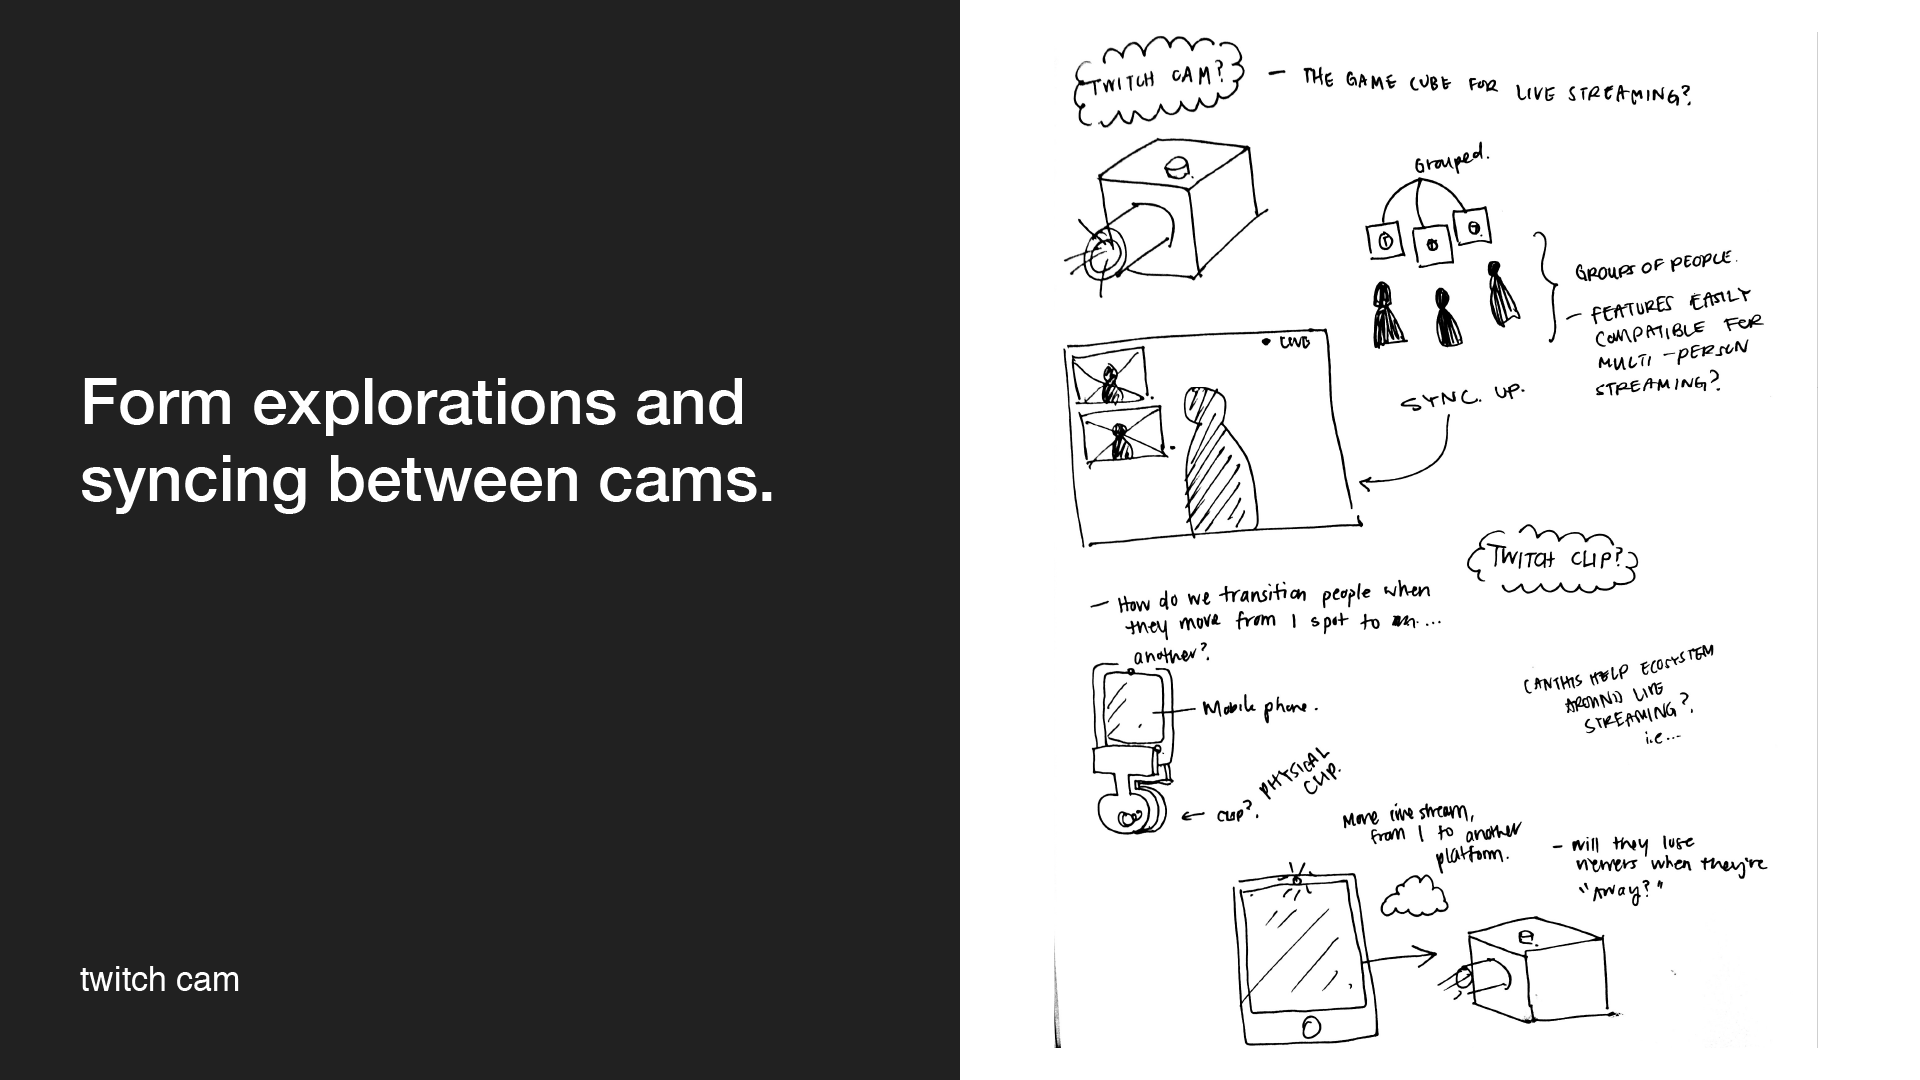 Form explorations and
syncing between cams.
twitch cam
TWITCH CAM?
— THE GAME CUBE FOR LIVE STREAMING?
Grouped.
GROUPS OF PEOPLE.
— FEATURES EASILY
COMPATIBLE FOR
MULTI-PERSON
STREAMING?
• LIVE
SYNC. UP.
TWITCH CLIP?
— How do we transition people when
they move from 1 spot to ...
another?
Mobile phone.
CAN THIS HELP ECOSYSTEM
AROUND LIVE
STREAMING?
i.e...
PHYSICAL
CLIP.
← CLIP?
Move live stream,
from 1 to another
platform.
— will they lose
viewers when they're
"Away?"